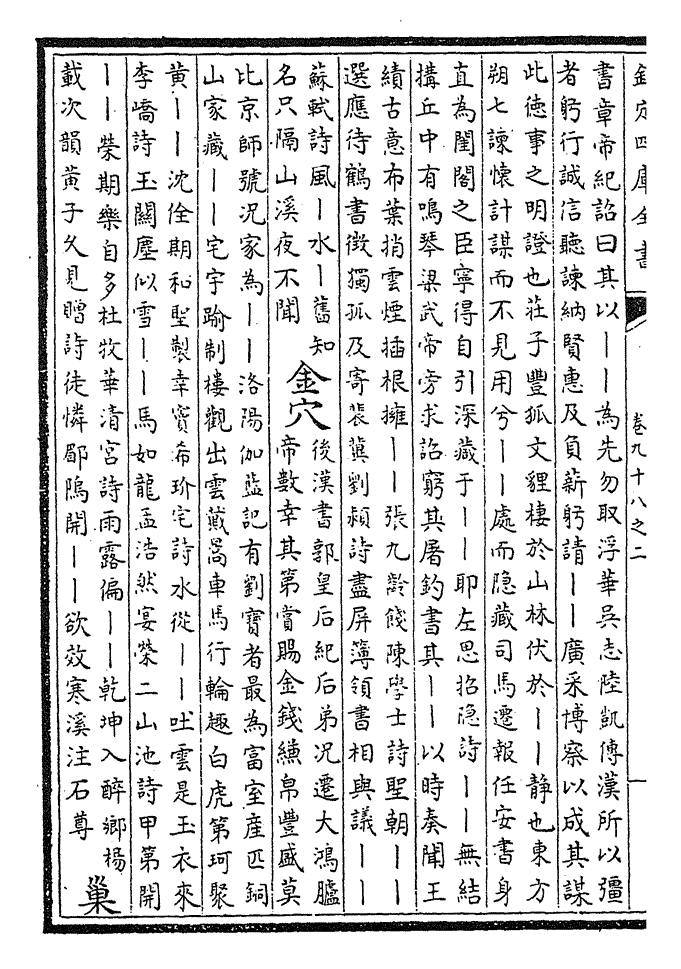 欽定四庫全書
卷九十八之二
書章帝紀詔曰其以丨丨為先勿取浮華吳志陸凱傳漢所以彊
者躬行誠信聽諫納賢惠及負薪躬請丨丨廣采博察以成其謀
此徳事之明證也莊子豐狐文貍棲於山林伏於丨丨静也東方
朔七諫懷計謀而不見用兮丨丨處而隐藏司馬遷報任安書身
直為閨閤之臣寧得自引深藏于丨丨耶左思招隐詩丨丨無結
搆丘中有鳴琴梁武帝旁求詔窮其屠釣書其丨丨以時奏聞王
績古意布葉捎雲煙插根擁丨丨張九齡餞陳學士詩聖朝丨丨
選應待鶴書徴獨孤及寄裴冀劉潁詩盡屏簿領書相與議丨丨
蘇軾詩風丨水丨舊知
名只隔山溪夜不聞
金穴
後漢書郭皇后紀后弟况遷大鴻臚
帝數幸其第賞賜金錢縑帛豐盛莫
比京師號况家為丨丨洛陽伽藍記有劉寶者最為富室産匹銅
山家藏丨丨宅宇踰制樓觀出雲戴暠車馬行輪趣白虎第珂聚
黄丨丨沈佺期和聖製幸竇希玠宅詩水從丨丨吐雲是玉衣來
李嶠詩玉關塵似雪丨丨馬如龍孟浩然宴榮二山池詩甲第開
丨丨榮期樂自多杜牧華清宫詩雨露偏丨丨乾坤入醉鄉楊
載次韻黄子久見贈詩徒憐郿隖開丨丨欲效寒溪注石尊
巢